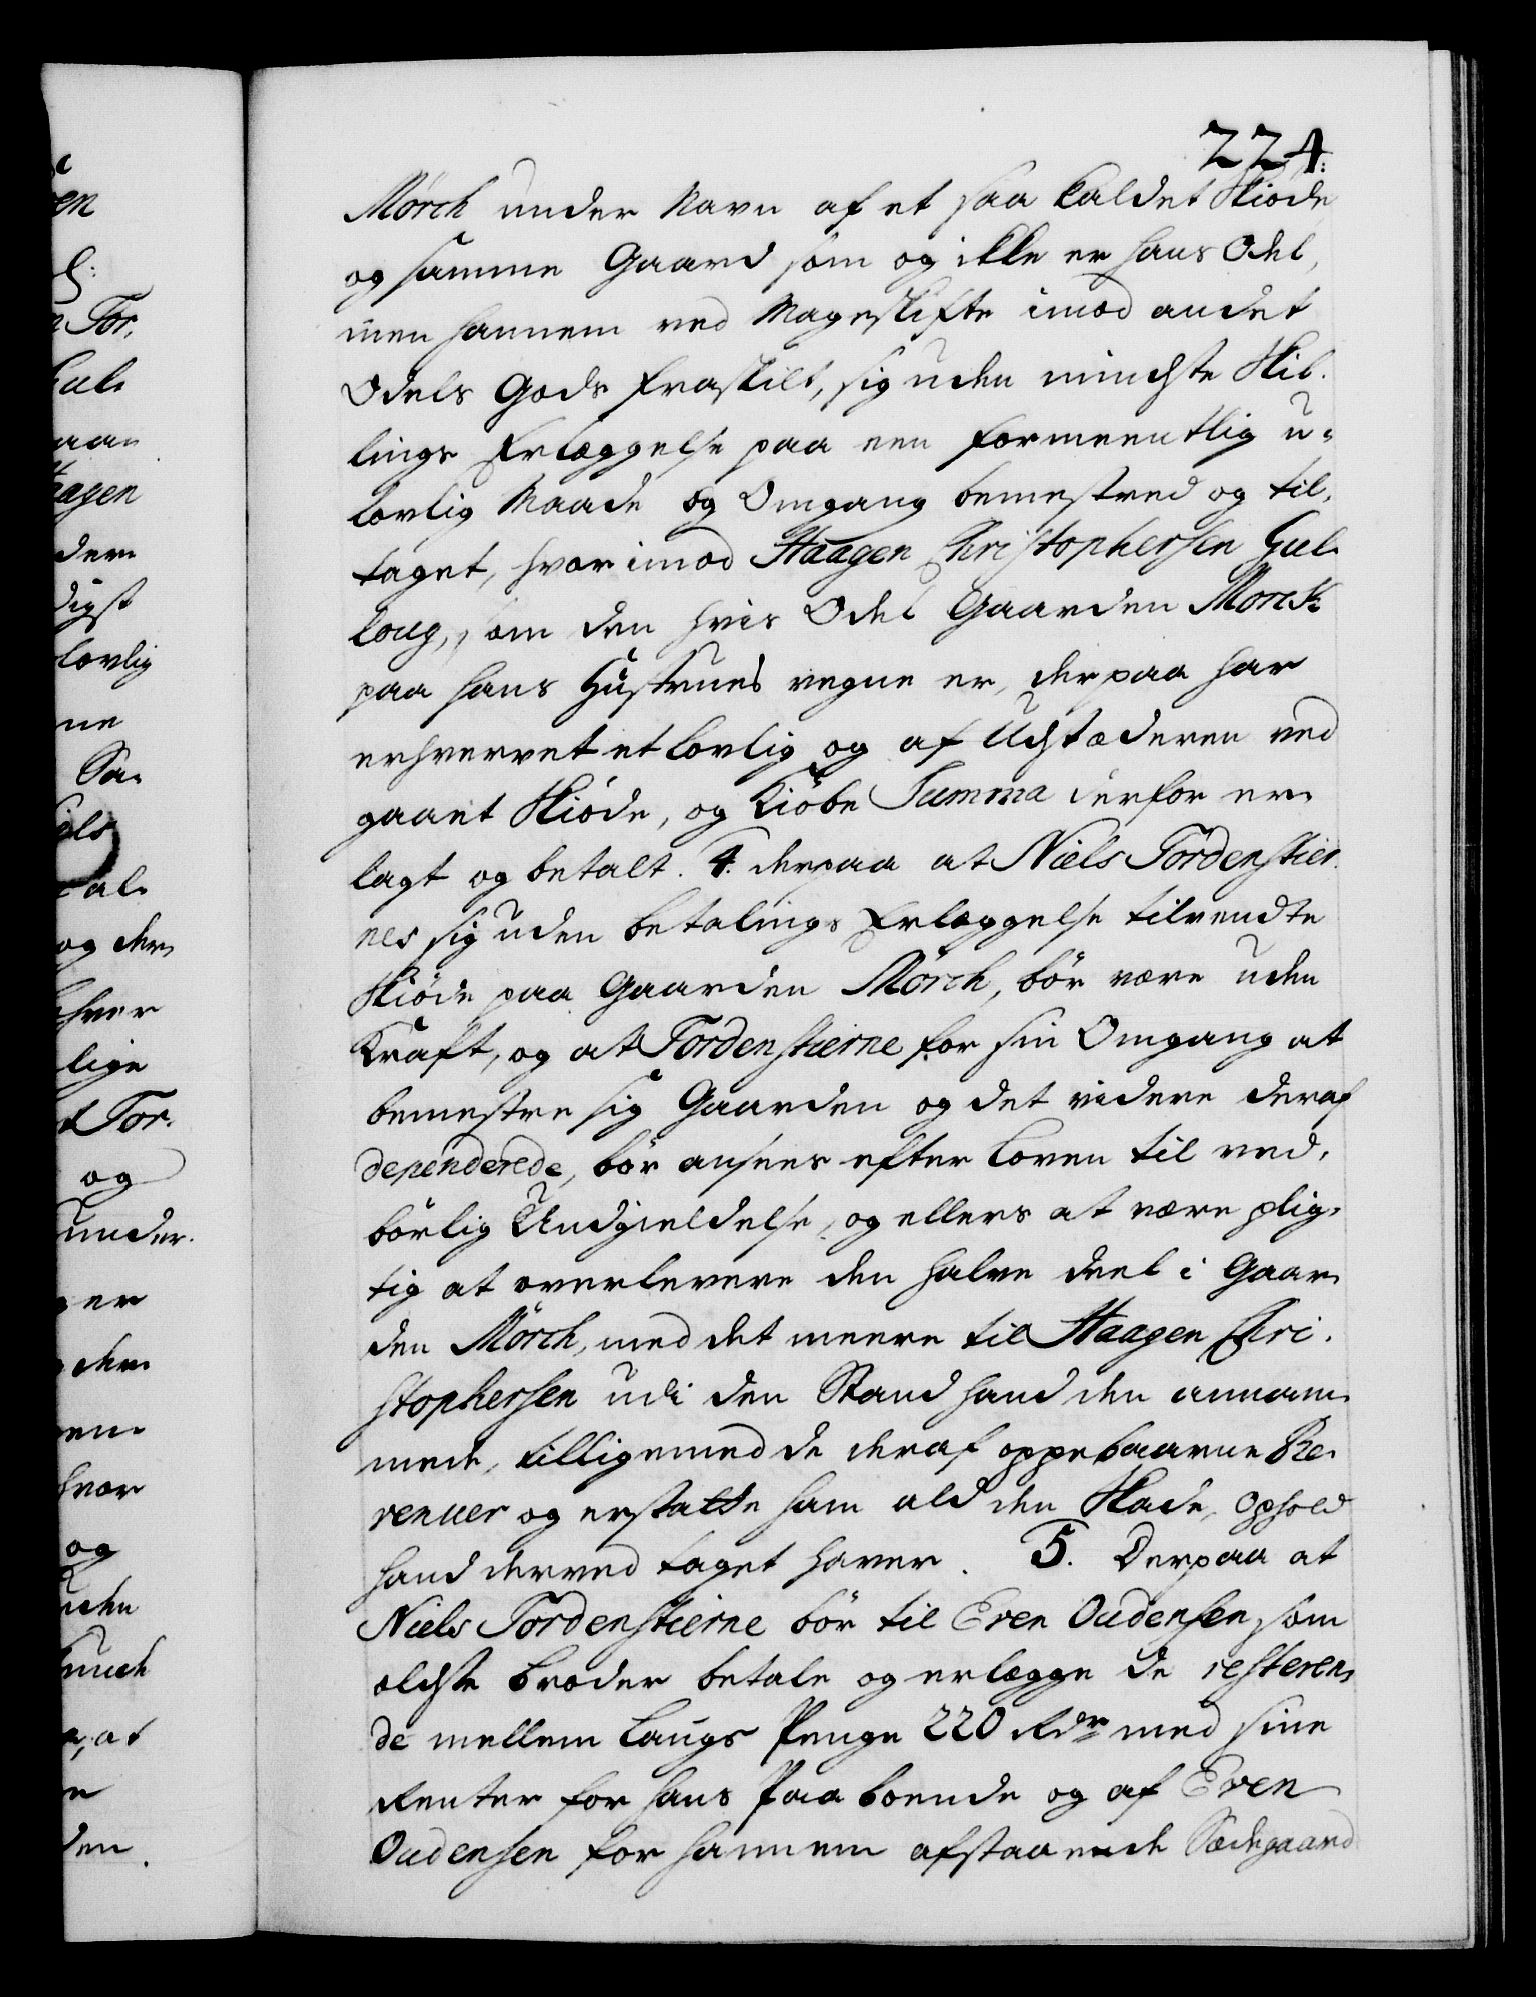 224.
Mörch under Navn af et saa kaldet Skiøde
og samme Gaard som og ikke er hans Odel,
men hannem ved Mageskifte imod andet
Odels Gods fraskilt, sig uden mindste Skil-
lings Erlæggelse paa een formeentlig u-
lovlig Maade og Omgang bemestred og til-
taget, hvorimod Haagen Christophersen Gul-
loug, som den hvis Odel Gaarden Mörck
paa hans Hustrues vegne er, derpaa har
erhvervet et lovlig og af Udstæderen ved
gaaet Skiöde, og Kiöbe Summa derfor er-
lagt og betalt. 4. derpaa at Niels Tordenstier-
nes sig uden betalings Erlæggelse tilvendte
Skiöde paa Gaarden Mörch, bör være uden
Kraft, og at Tordenstierne for sin Omgang at
bemestre sig Gaarden og det videre deraf
dependerede, bör ansees efter Loven til ved-
börlig Undgieldelse, og ellers at være plig-
tig at overlevere den halve deel i Gaar-
den Mörch, med det meere til Haagen Chri-
stophersen udi den Stand hand den annam-
mede, tilligemed de deraf oppebaarne Re-
venuer og erstatte ham ald den Skade, Ophold
hand derved taget haver. 5. Derpaa at
Niels Tordenstierne bör til Even Oudensen, som
ældste broder betale og erlægge de resteren-
de mellem Laugs Penge 220 Rdr med sine
Renter for hans Paaboende og af Even
Oudensen for hannem afstaaende Sædegaard